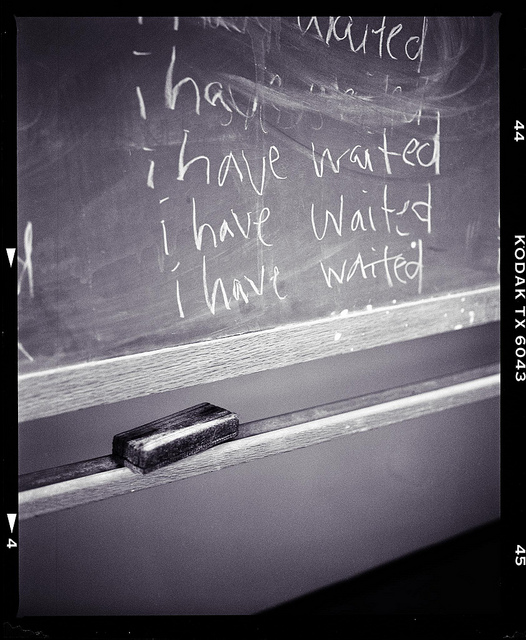 waited
i have
i have waited
i have waited
i have waited
44
KODAK TX 6043
4
45